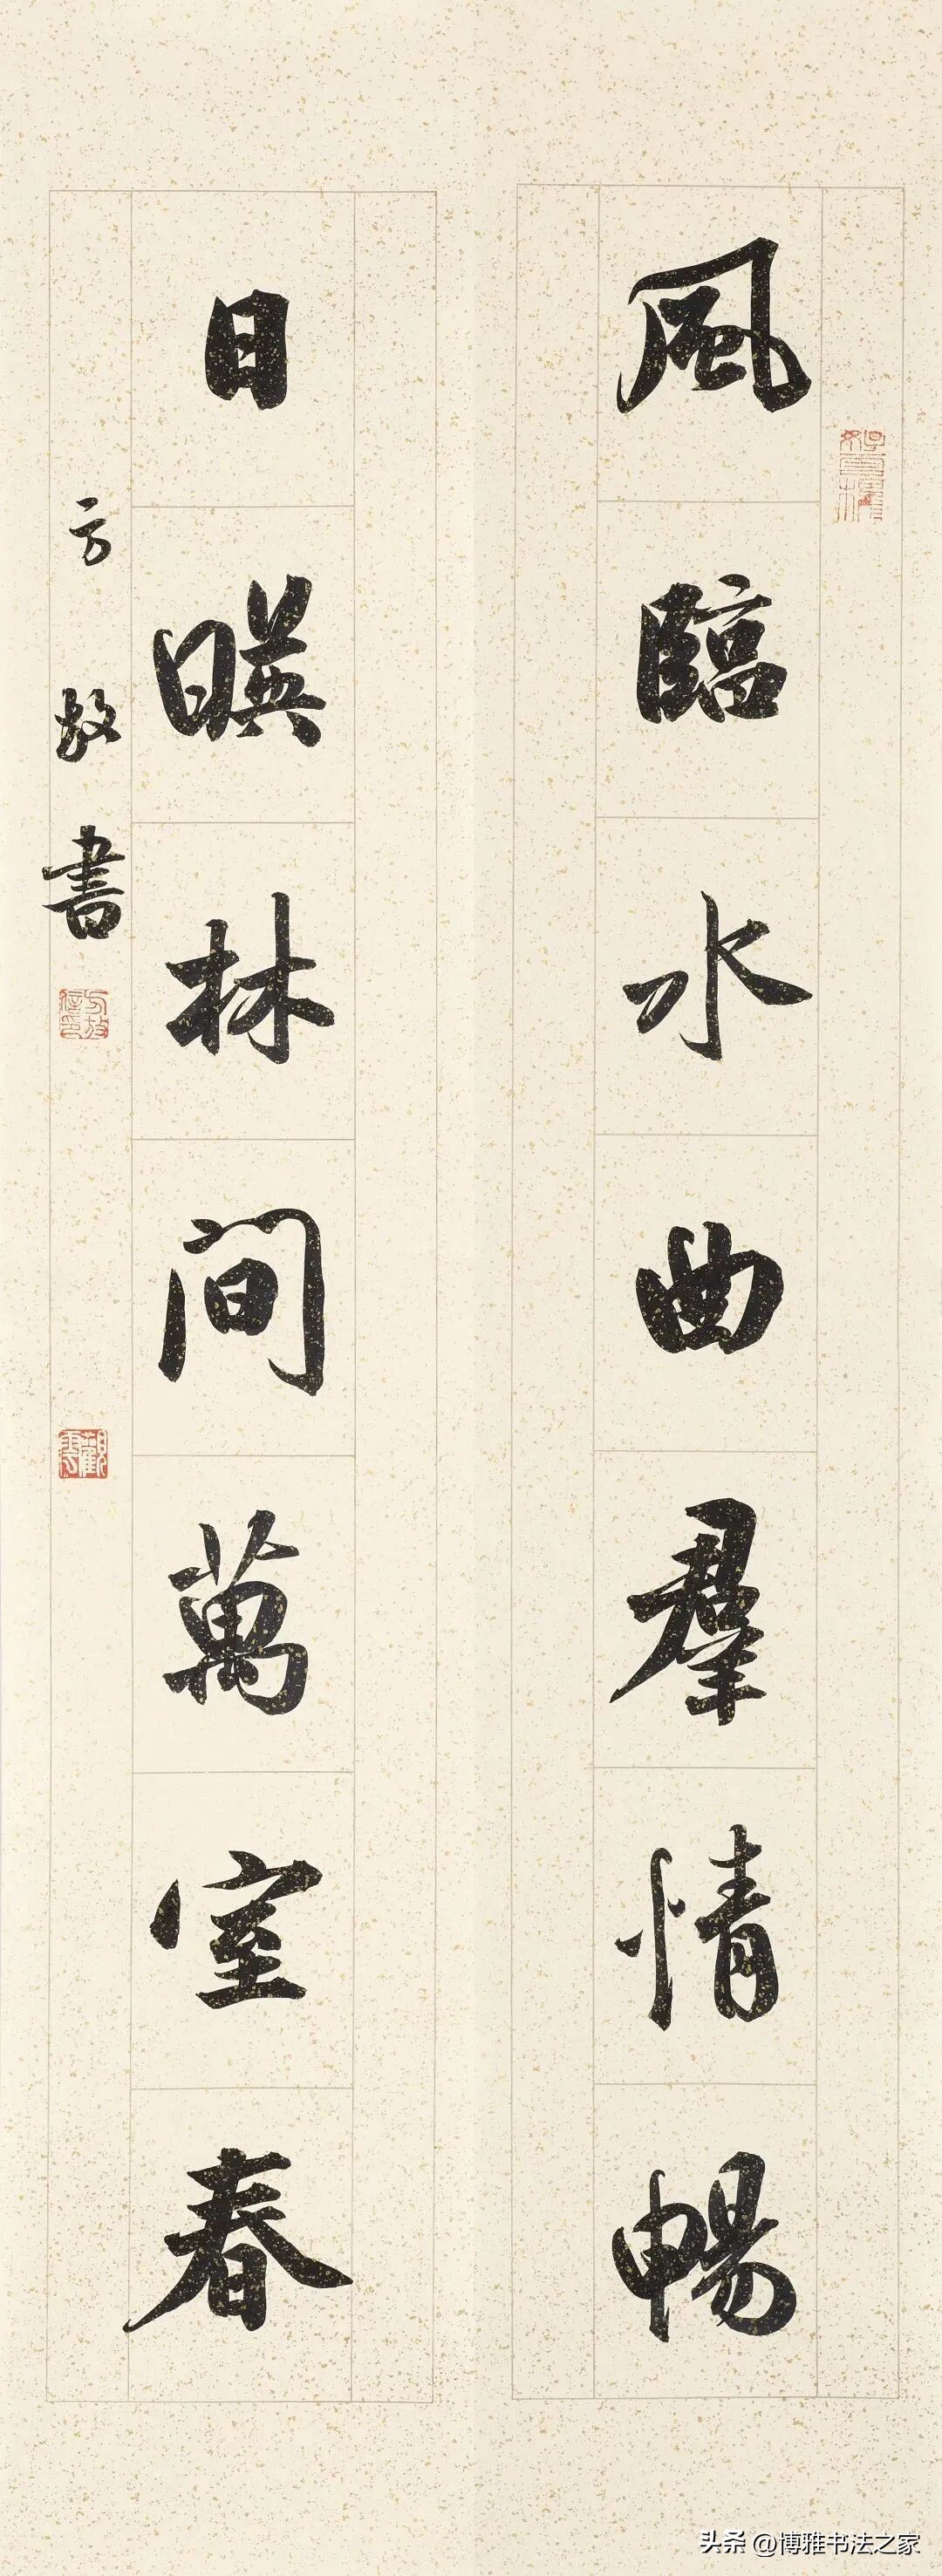 風臨水曲羣情暢
日暎林间萬室春
方放書
頭条 @博雅书法之家